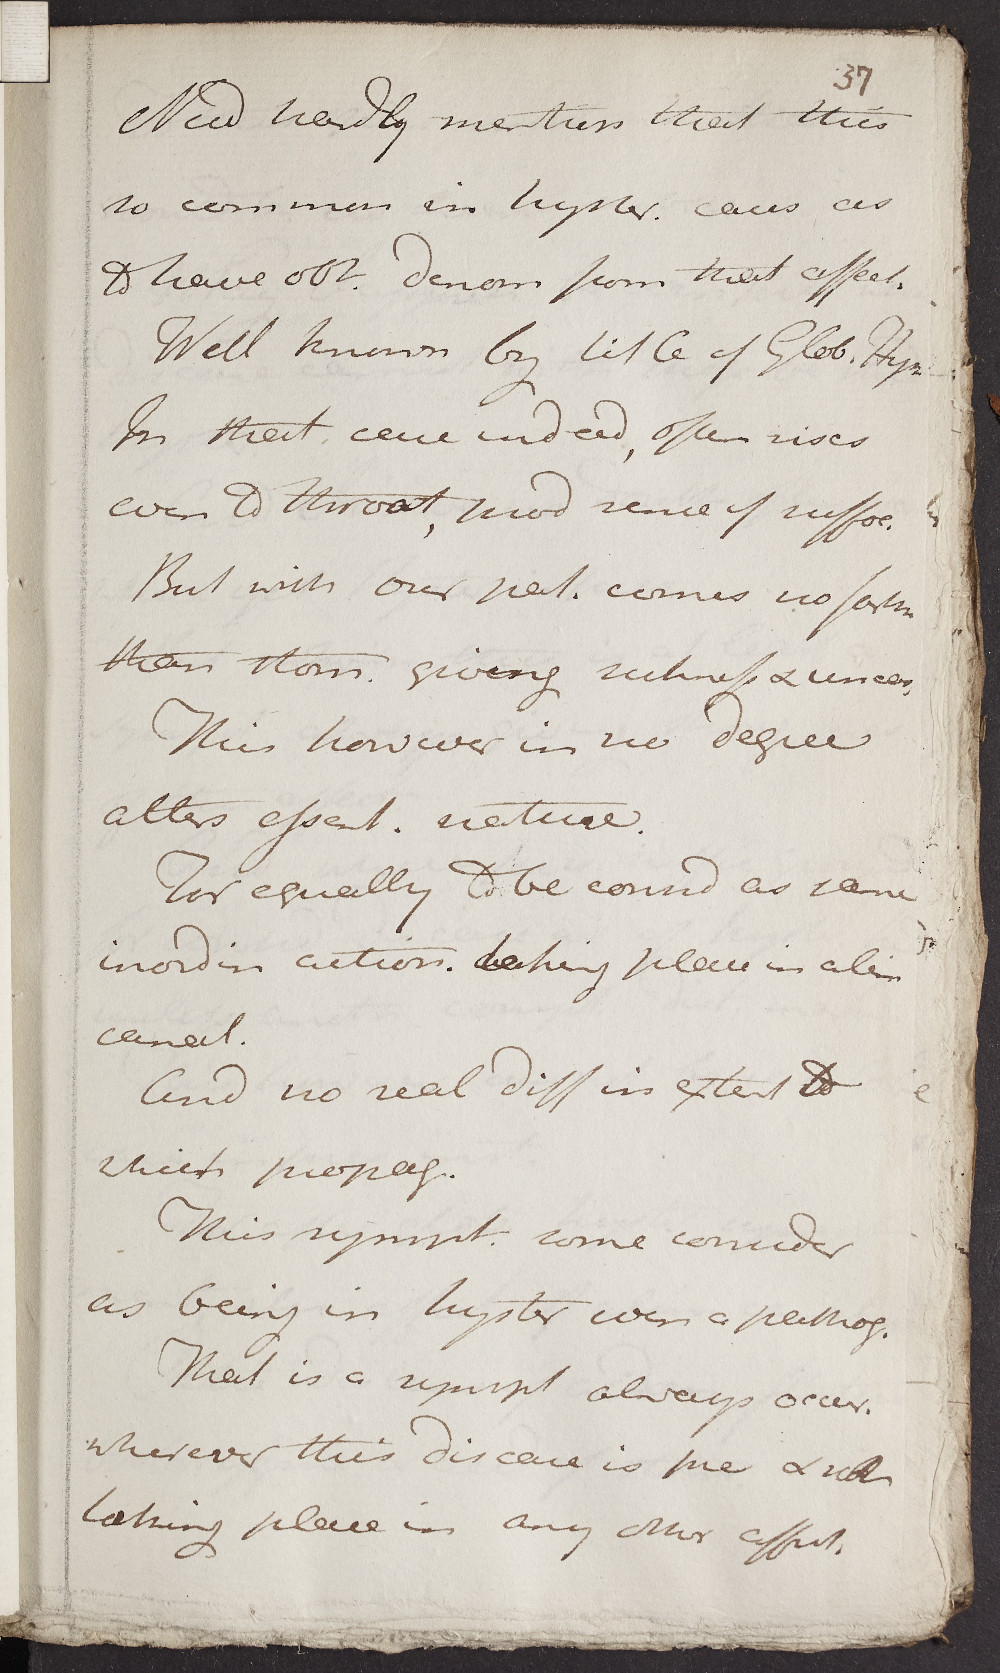 37
Need hardly mention that this
so common in hyster. cases as
to have obt. denom from that affect.
Well known by title of Glob. Hys
In that case indeed, often rises
even to throat, prod sense of suffoc.
But with our pat. comes no farth
than stom. giving sickness & uneas,
This however in no degree
alters essent. nature.
For equally to be consid as same
inordin action. taking place in alim
canal.
And no real diff in extent to
which propag.
This sympt. some consider
as being in hyster even a pathog.
That is a sympt always occur.
wherever this disease is pre &
taking place in any other affect.